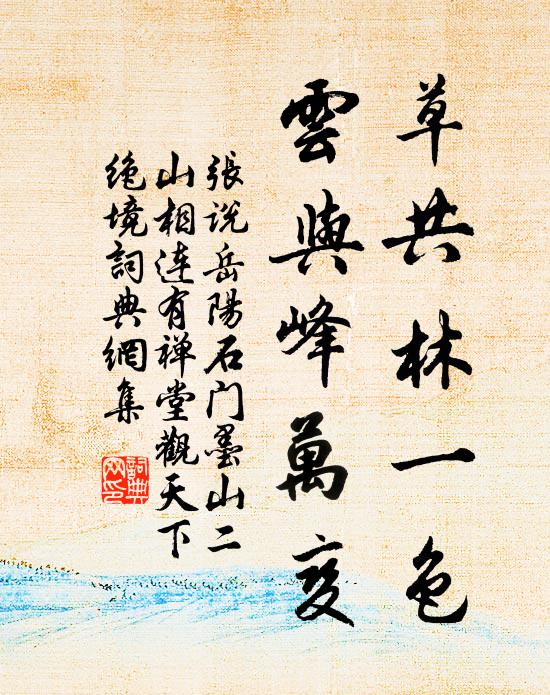 草共林一色
雲與峰萬变
張説岳陽石门墨山二
山相连有禅堂觀天下
绝境詞典網集
詞典
网印